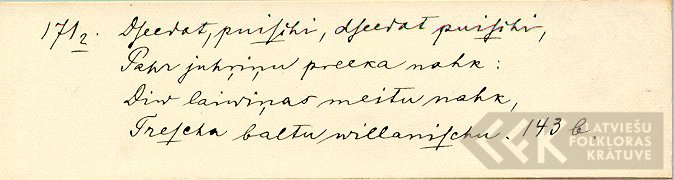 171₂. Dſeedat, puiſchi, dſeedat puiſchi,
Pahr juhriņu preeka nahk:
Diw laiwiņas meitu nahk,
Treſcha baltu willaniſchu. 143 b.
LATVIEŠU
FOLKLORAS
KRĀTUVE